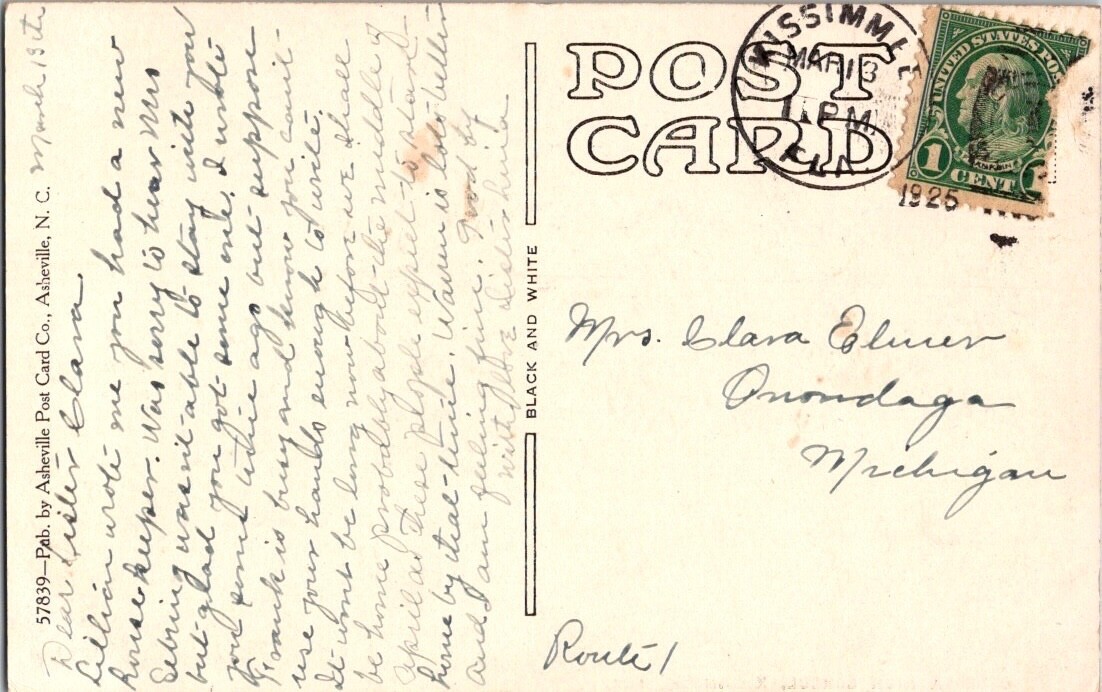 57839—Pub. by Asheville Post Card Co., Asheville, N. C.
March 13th
Dear Sister Clara.
Lillian wrote me you had a new
house keeper. Was sorry to hear Mrs
Sebring wasn't able to stay with you
but glad you got some one. I wrote
you some time ago but suppose
Frank is busy and know you can't
use your hands enough to write.
It wont be long now before we shall
be home probably about the middle of
April as these people expect to start
home by that time. Warren is lots better
and I am feeling fine. Good by
with love Sister
BLACK AND WHITE
POST
CARD
KISSIMMEE
MAR 13
PM
FLA
1925
UNITED STATES POS
FRANKLIN
1 CENT 1
Mrs. Clara Elmer
Onondaga
Michigan
Route 1